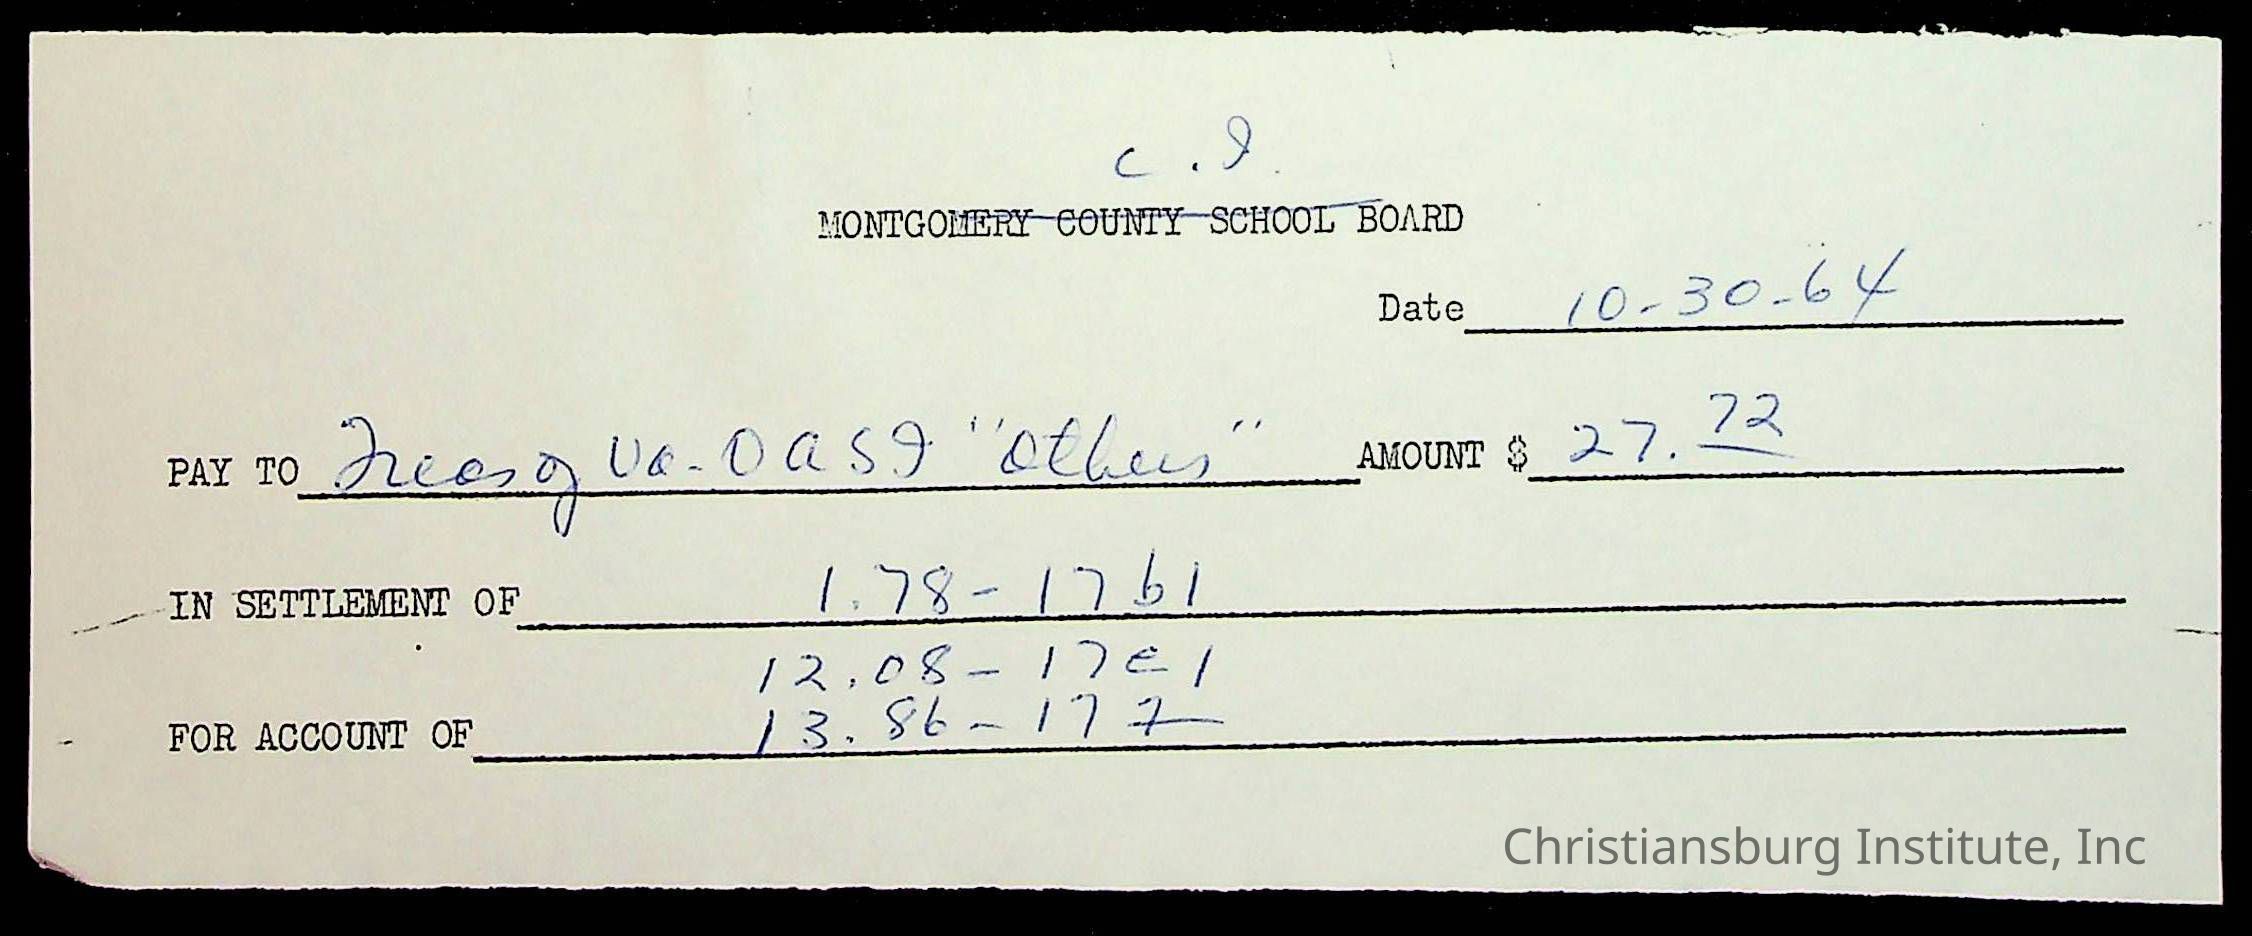 C.I.
MONTGOMERY COUNTY SCHOOL BOARD
Date 10-30-64
PAY TO Treas of Va-OASI "Others" AMOUNT $ 27.72
IN SETTLEMENT OF 1.78-17b1
12.08-17e1
FOR ACCOUNT OF 13.86-177
Christiansburg Institute, Inc